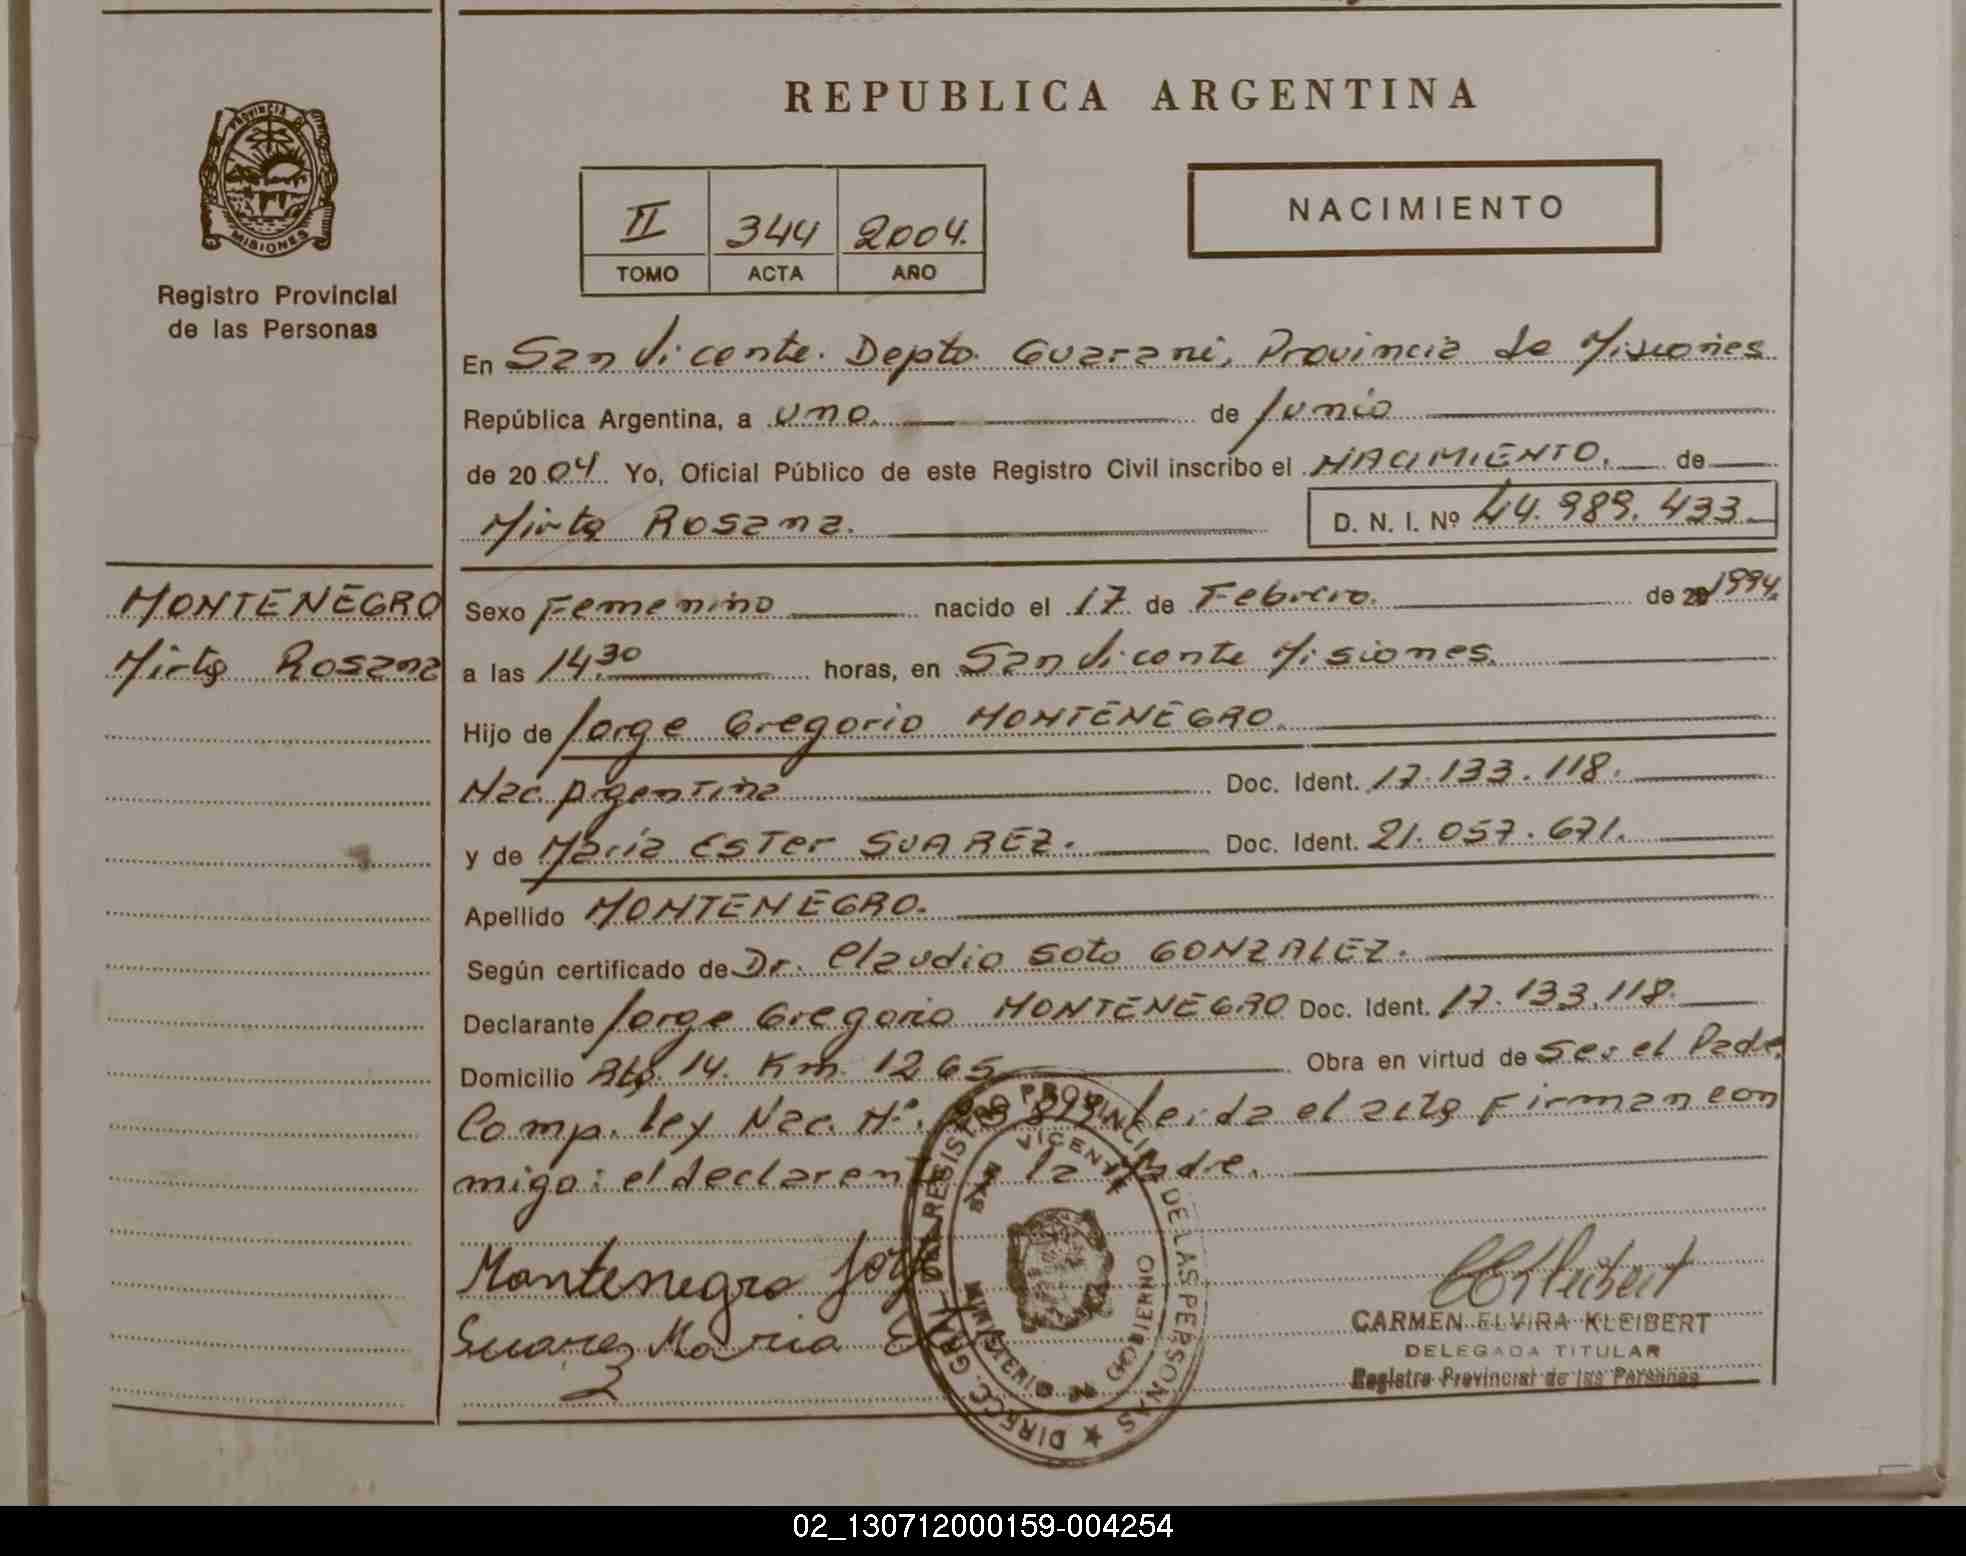 REPUBLICA ARGENTINA
PROVINCIA DE
MISIONES
Registro Provincial
de las Personas
NACIMIENTO
II 344 2004.
TOMO ACTA AÑO
En San Vicente. Depto. Guarani, Provincia de Misiones
República Argentina, a uno. de Junio
de 2004 Yo, Oficial Público de este Registro Civil inscribo el NACIMIENTO. de
Mirta Rosana. D. N. I. Nº 44.989.433.
MONTENEGRO
Mirta Rosana
Sexo Femenino nacido el 17 de Febrero. de 20 1994.
a las 14.30 horas, en San Vicente Misiones.
Hijo de Jorge Gregorio MONTENEGRO.
Nac. Argentina Doc. Ident. 17.133.118.
y de María Ester SUAREZ. Doc. Ident. 21.057.671.
Apellido MONTENEGRO.
Según certificado de Dr. Claudio Soto GONZALEZ.
Declarante Jorge Gregorio MONTENEGRO Doc. Ident. 17.133.118.
Domicilio Rta. 14. Km. 1265 Obra en virtud de Ser el Padre.
Comp. ley Nac. Nº. Leida el acta Firman con
migo: el declarante la Madre.
Montenegro Jorge
Suarez Maria
DIRECC. GRAL. DEL REGISTRO PROVINCIAL DE LAS PERSONAS
SAN VICENTE
MINISTERIO DE GOBIERNO
CEKleibert
CARMEN ELVIRA KLEIBERT
DELEGADA TITULAR
Registro Provincial de las Personas
02_130712000159-004254